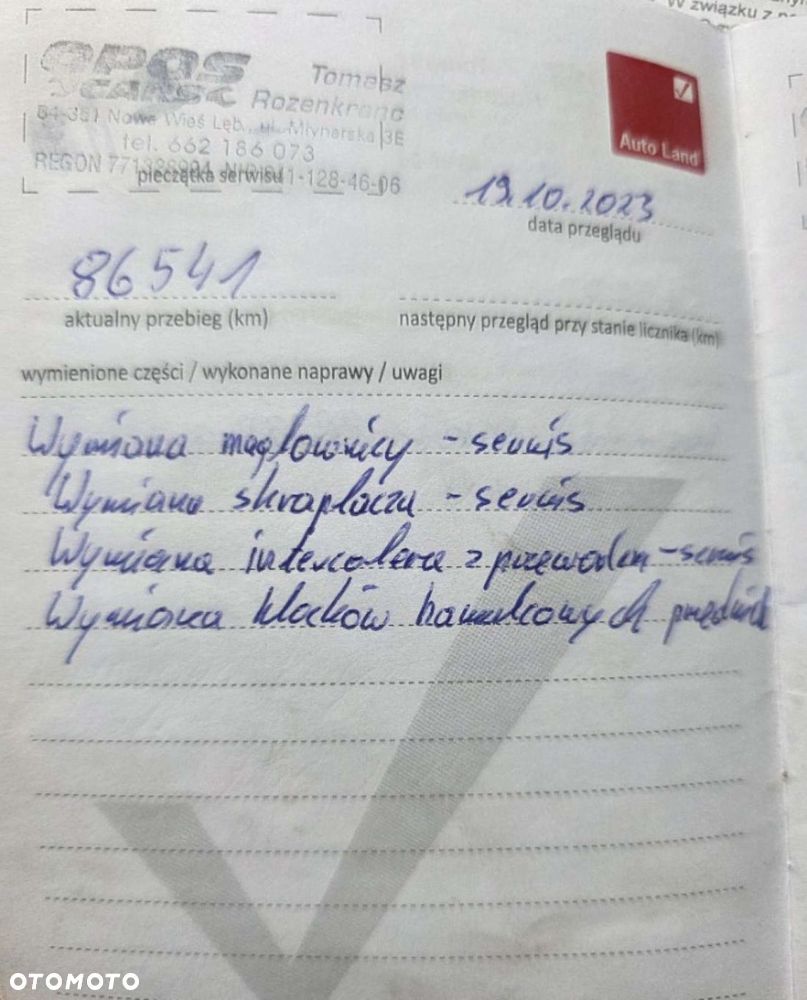 W związku z
OPOS
CARS
Tomasz
Rozenkranc
84-351 Nowa Wieś Lęb., ul. Młynarska 3E
tel. 662 186 073
REGON
1-128-46-06
pieczątka serwisu
Auto Land
19.10.2023
data przeglądu
86541
aktualny przebieg (km)
następny przegląd przy stanie licznika (km)
wymienione części / wykonane naprawy / uwagi
Wymiana magłownicy - serwis
Wymiana skraplacza - serwis
Wymiana intercolera z przewodem - serwis
Wymiana klocków hamulcowych przednich
OTOMOTO